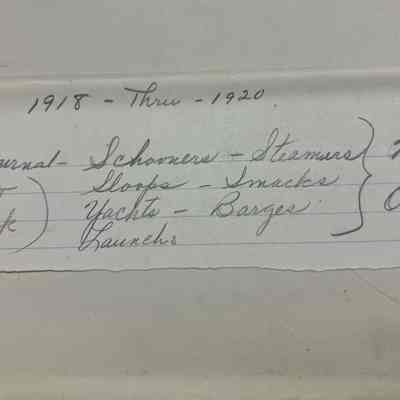 1918 - Thru - 1920
urnal - Schooners - Steamers
Sloops - Smacks
k) Yachts - Barges
Launchs